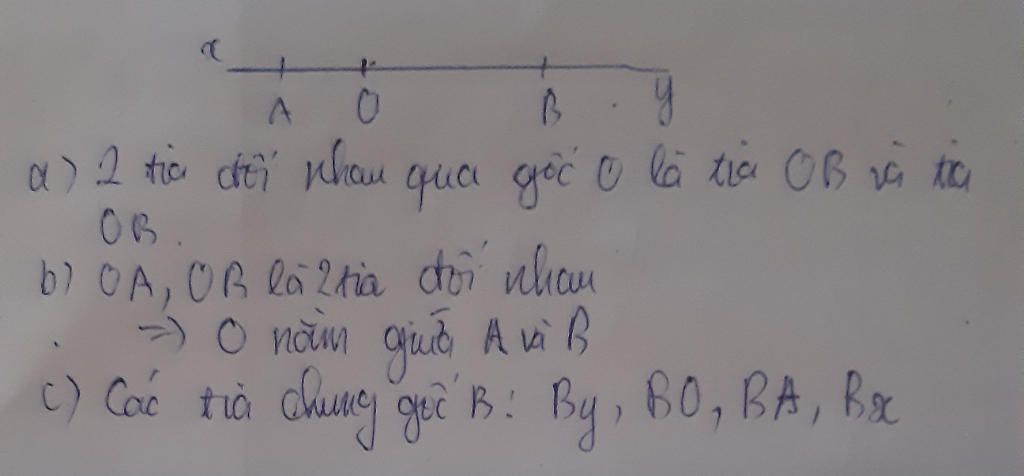 x
A O B y
a) 2 tia đối nhau qua gốc O là tia OB và tia
OB.
b) OA, OB là 2 tia đối nhau
=> O nằm giữa A và B
c) Các tia chung gốc B: By, BO, BA, Bx